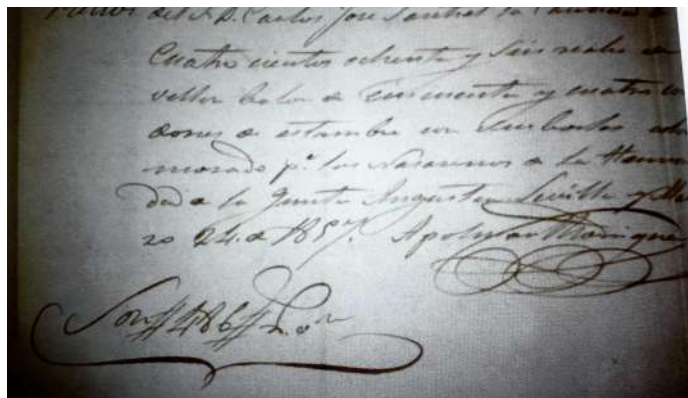 del Sr. D. Carlos Jose Sanchez la Cantidad
Cuatro cientos ochenta y seis reales
vellon balor de Cincuenta y cuatro cor
dones de estambre con sus borlas
morado pa. los Nasarenos de la Herman
dad de la Quinta Angustia Sevilla y Mar
zo 24 de 1857. Apolinar
Son # 486 # r. vn